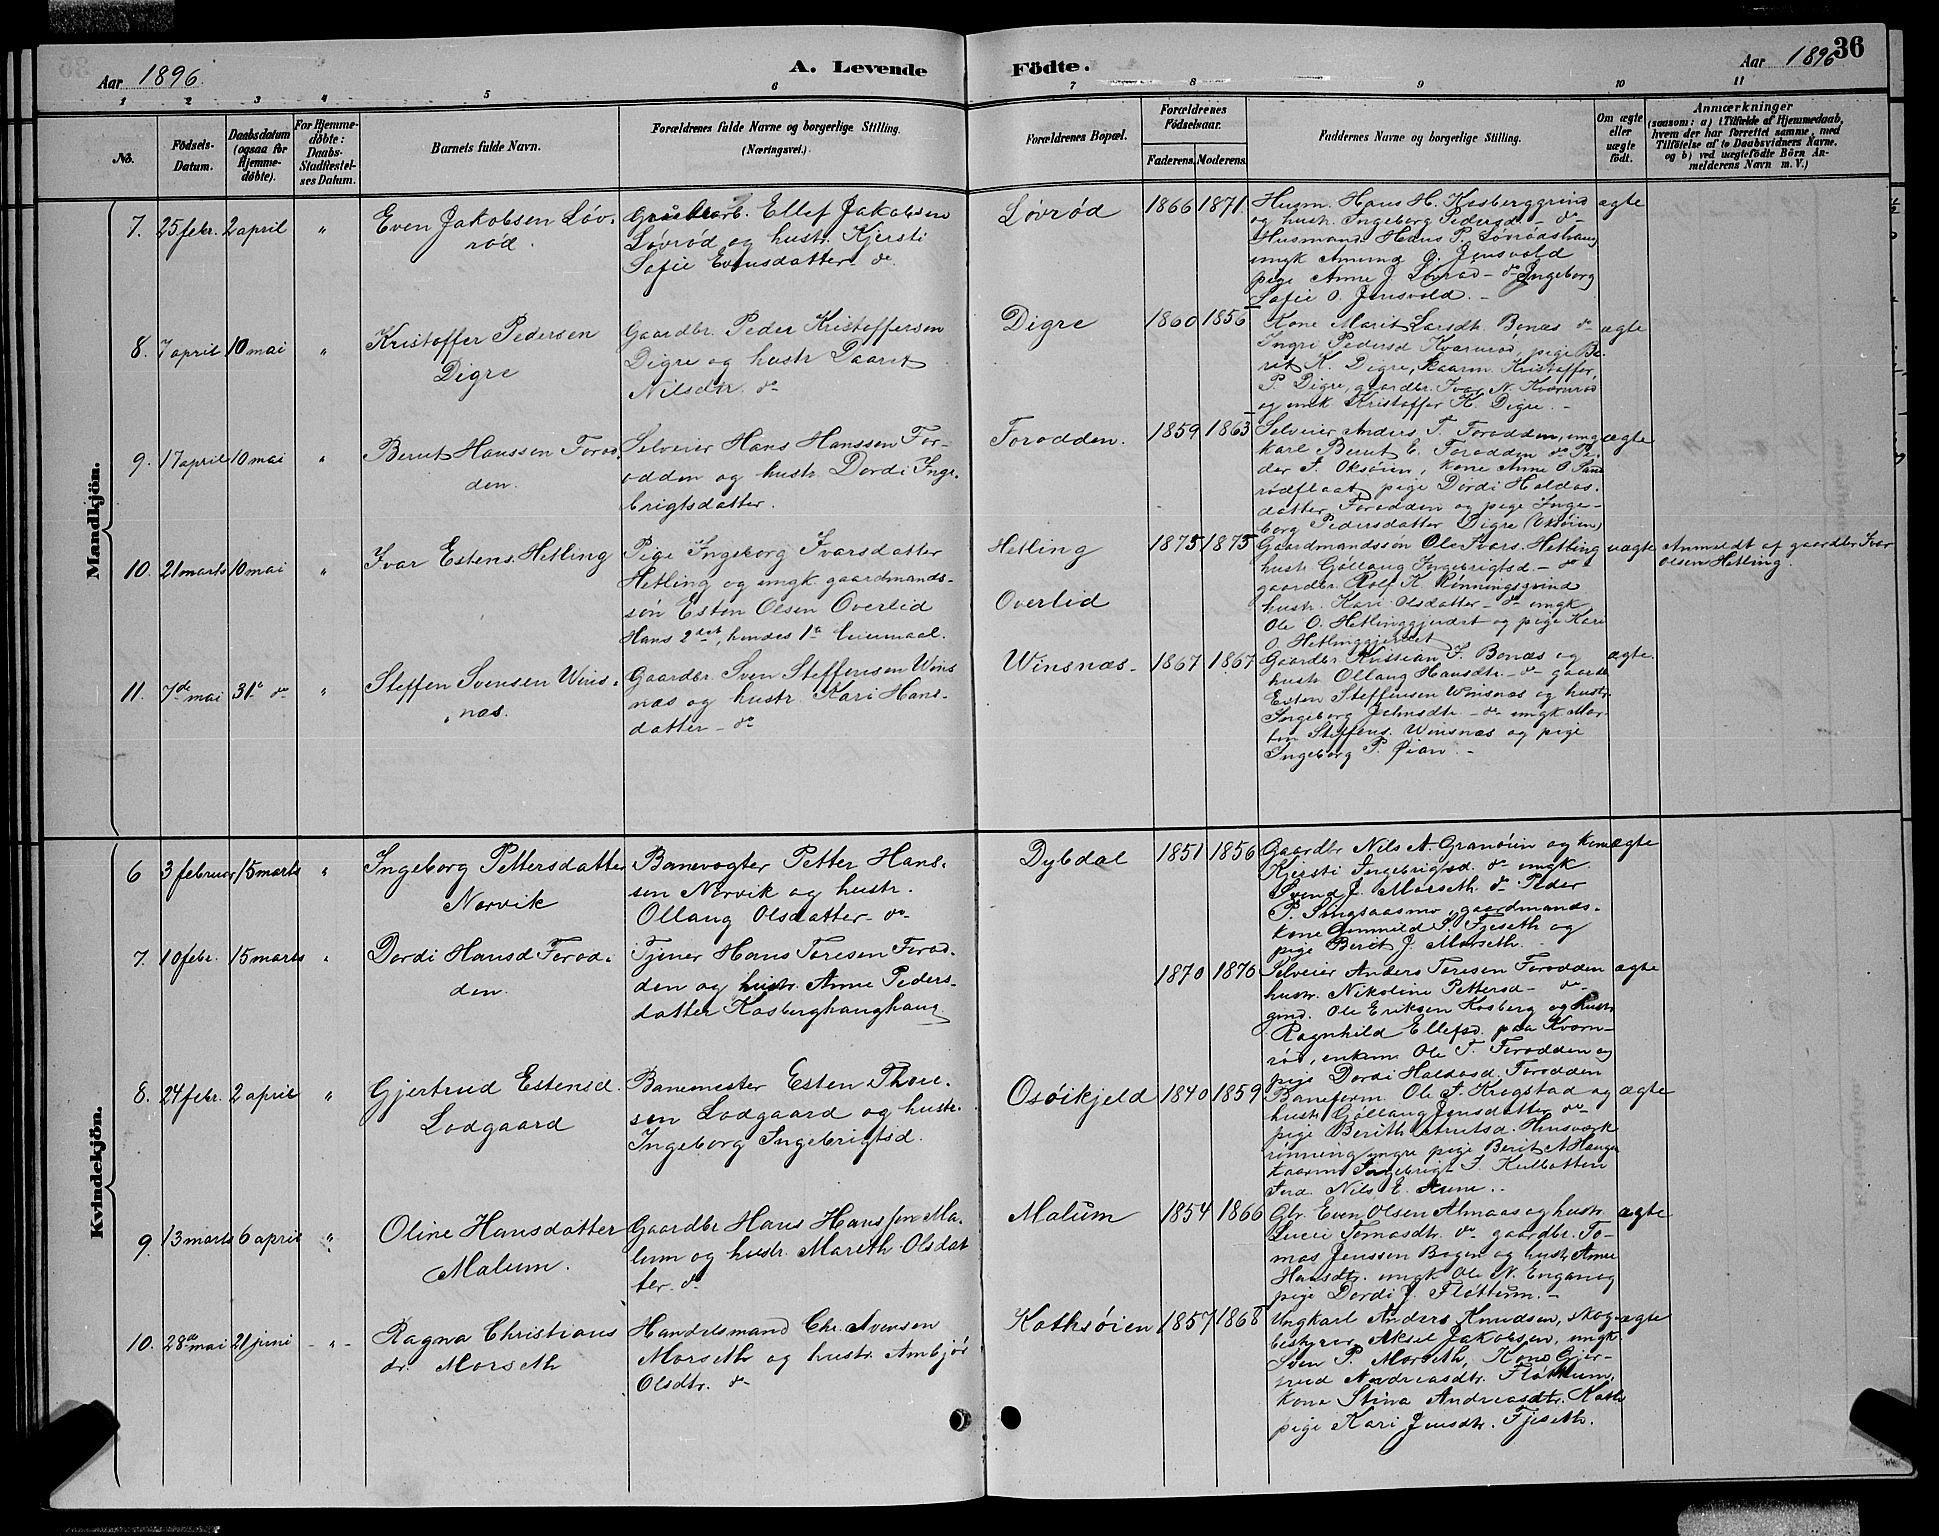 36
Aar 1896.
A. Levende
Födte.
Aar 1896
1 2 3 4 5 6 7 8 9 10 11
No.
Födsels-
Datum.
Daabsdatum
(ogsaa for
Hjemme-
döbte).
For Hjemme-
döbte:
Daabs-
Stadfæstel-
ses Datum.
Barnets fulde Navn.
Forældrenes fulde Navne og borgerlige Stilling.
(Næringsvei.)
Forældrenes Bopæl.
Forældrenes
Födselsaar.
Faderens.
Moderens.
Faddernes Navne og borgerlige Stilling.
Om ægte
eller
uægte
födt.
Anmærkninger
(saasom: a) i Tilfælde af Hjemmedaab,
hvem der har forrettet samme, med
Tilföielse af to Daabsvidners Navne,
og b) ved uægtefödte Börn An-
melderens Navn m. V.)
Mandkjön.
7. 25 febr. 2 april "
Even Jakobsen Løv-
rød.
Ellef Jakobsen
Løvrød og hustr. Kjersti
Sofie Evensdatter do
Løvrød
1866 1871.
Husm. Hans H. Kosberggrind
og hustr. Ingeborg Pedersd. - do -
Husmand Hans P. Løvrødshaug
ungk Amund O. Jensvold
pige Anne J. Løvrød - do Ingeborg
Sofie O. Jensvold. -
ægte
8. 7 april 10 mai "
Kristoffer Pedersen
Digre
Gaardbr. Peder Kristoffersen
Digre og hustr Daaret
Nilsdtr. do
Digre
1860 1856
Kone Marit Larsdtr. Bonæs do
Ingri Pedersd Kvernrød, pige Be-
rit K. Digre, kaarm. Kristoffer
P. Digre, gaardbr. Ivar N. Kvernrød
og ungk Kristoffer K. Digre. -
ægte
9. 17 april 10 mai "
Berut Hanssen Forod-
den.
Selveier Hans Hanssen For-
odden og hustr. Dordi Inge-
brigtsdatter.
Forodden.
1859 1863
Selveier Anders T. Forodden, ung
karl Berut E. Forodden do Pe-
der J. Oksøien, kone Anne O San
rødflaat, pige Dordi Haldos-
datter Forodden og pige Inge-
borg Pedersdatter Digre (Oksøien)
ægte
10. 21 marts 10 mai "
Ivar Estens. Hetling
Pige Ingeborg Ivarsdatter
Hetling og ungk gaardmands-
søn Esten Olsen Overlid
Hans 2det, hendes 1te leiermaal.
Hetling
Overlid
1875 1875
Gaardmandssøn Ole Ivars. Hetling
hustr Gøllaug Ingebrigtsd - do -
gaardbr. Rolf K Rønningsgrind
hustr. Kari Olsdatter - do ungk
Ole O. Hetlinggjerdet og pige Kari
O. Hetlinggjerdet
uægte
Anmeldt af gaardbr Ivar
Olsen Hetling.
11. 7de mai 31te do "
Steffen Svensen Wins-
næs.
Gaardbr. Sven Steffensen Wins
næs og hustr. Kari Hans-
datter - do
Winsnæs -
1867 1867
Gaardbr Kristian J. Bonæs og
hustr Ollaug Hansdtr. - do - gaardb
Esten Steffensen Winsnæs og hustr.
Ingeborg Johnsdtr. - do - ungk Mor-
ten Steffens. Winsnæs og pige
Ingeborg P. Øian. -
ægte.
Kvindekjön.
6 3 februar 15 marts "
Ingeborg Pettersdatter
Norvik
Banevogter Petter Hans-
sen Norvik og hustr.
Ollaug Olsdatter - do -
Dybdal
1851 1856
Gaardbr Nils A. Granøien og kone
Kjersti Ingebrigtsd. do ungk
Svend J. Morseth do Peder
P. Singsaasmo, gaardmands-
kone Gunnild S. Fjeseth og
pige Berit J. Morseth.
ægte
7. 10 febr. 15 marts "
Dordi Hansd Forod-
den.
Tjener Hans Toresen Forod-
den og hustr. Anne Peders-
datter Kosberghaughaug
1870 1876
Selveier Anders Toresen Forodden
hustr. Nikoline Pettersd - do -
gmd. Ole Eriksen Kosberg og hustr
Ragnhild Ellefsd. paa Kvern-
rød, enkem. Ole T. Forodden og
pige Dordi Haldosd. Forodden
ægte
8. 24 febr. 2 april "
Gjertrud Estensd.
Lodgaard
Banemester Esten Thore-
sen Lodgaard og hustr.
Ingeborg Ingebrigtsd.
Osøikjeld
1840 1859
Baneform. Ole J. Krogstad og
hustr Gøllaug Jensdatter do
pige Berith Arntsd. Husværk
rønning yngre pige Berit A Haugen
kaarm Ingebrigt J. Kulbotten
Ferd. Nils E. Aune. -
ægte
9. 13 marts 6 april "
Oline Hansdatter
Malum.
Gaardbr Hans Hanssen Ma-
lum og hustr. Mareth Olsdat
ter. do
Malum
1854 1866
Gbr. Even Olsen Almaas og hustr
Lucie Tomasdtr. do gaardbr. To-
mas Jenssen Bogen og hustr Anne
Hansdtr. ungk Ole N. Engan og
pige Dordi J. Fløttum. -
ægte
10. 28de mai 21 juni - " -
Ragna Christians
dr. Morseth
Handelsmand Chr. Svensen
Morseth og hustr. Ambjør
Olsdtr. do
Kotksøien
1857 1868
Ungkarl Anders Knudsen, skog-
bestyrer Aksel Jakobsen, ungk
Sven P. Morseth, Kone Gjer-
trud Andreasdtr. Fløttum,
kone Stina Andreasdtr. Koth
pige Kari Jensdtr. Fjeseth.
ægte